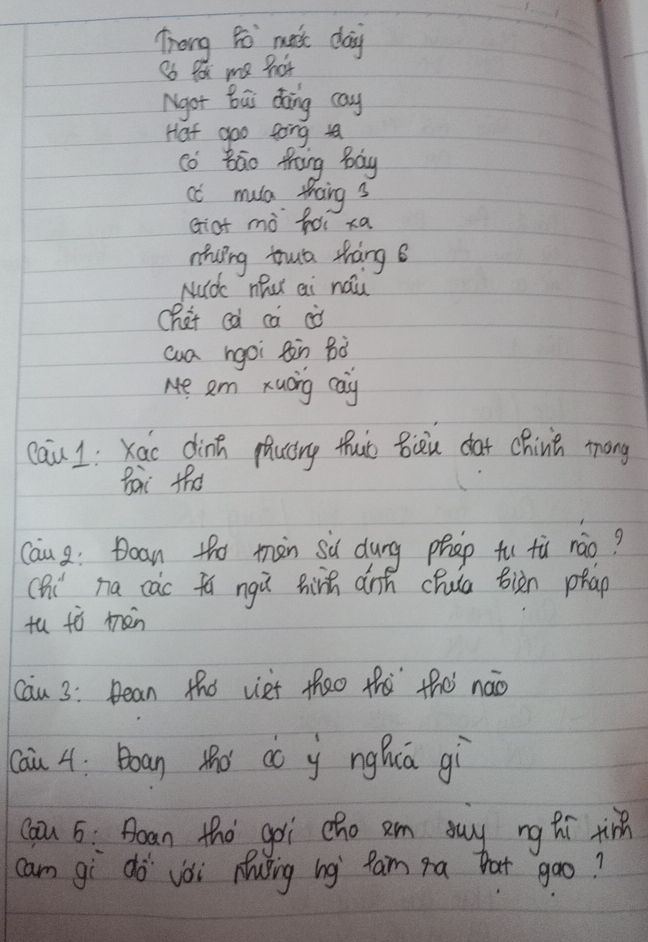 Trong hồ nước đầy
Có lời mẹ hát
Ngọt bùi đắng cay
Hạt gạo làng ta
Có bão tháng bảy
Có mưa tháng 3
Giọt mồ hôi xa
những trưa tháng 6
Nước như ai nấu
Chết cả cá cờ
cua ngoi lên bờ
Mẹ em xuống cấy
Câu 1: Xác định phương thức biểu đạt chính trong
bài thơ
Câu 2: Đoạn thơ trên sử dụng phép tu từ nào?
Chỉ ra các từ ngữ hình ảnh chứa biện pháp
tu từ trên
Câu 3: Đoạn thơ viết theo thể thơ nào
Câu 4: Đoạn thơ có ý nghĩa gì
Câu 5: Đoạn thơ gợi cho em suy nghĩ tình
cảm gì đố với những ng' làm ra hạt gạo?